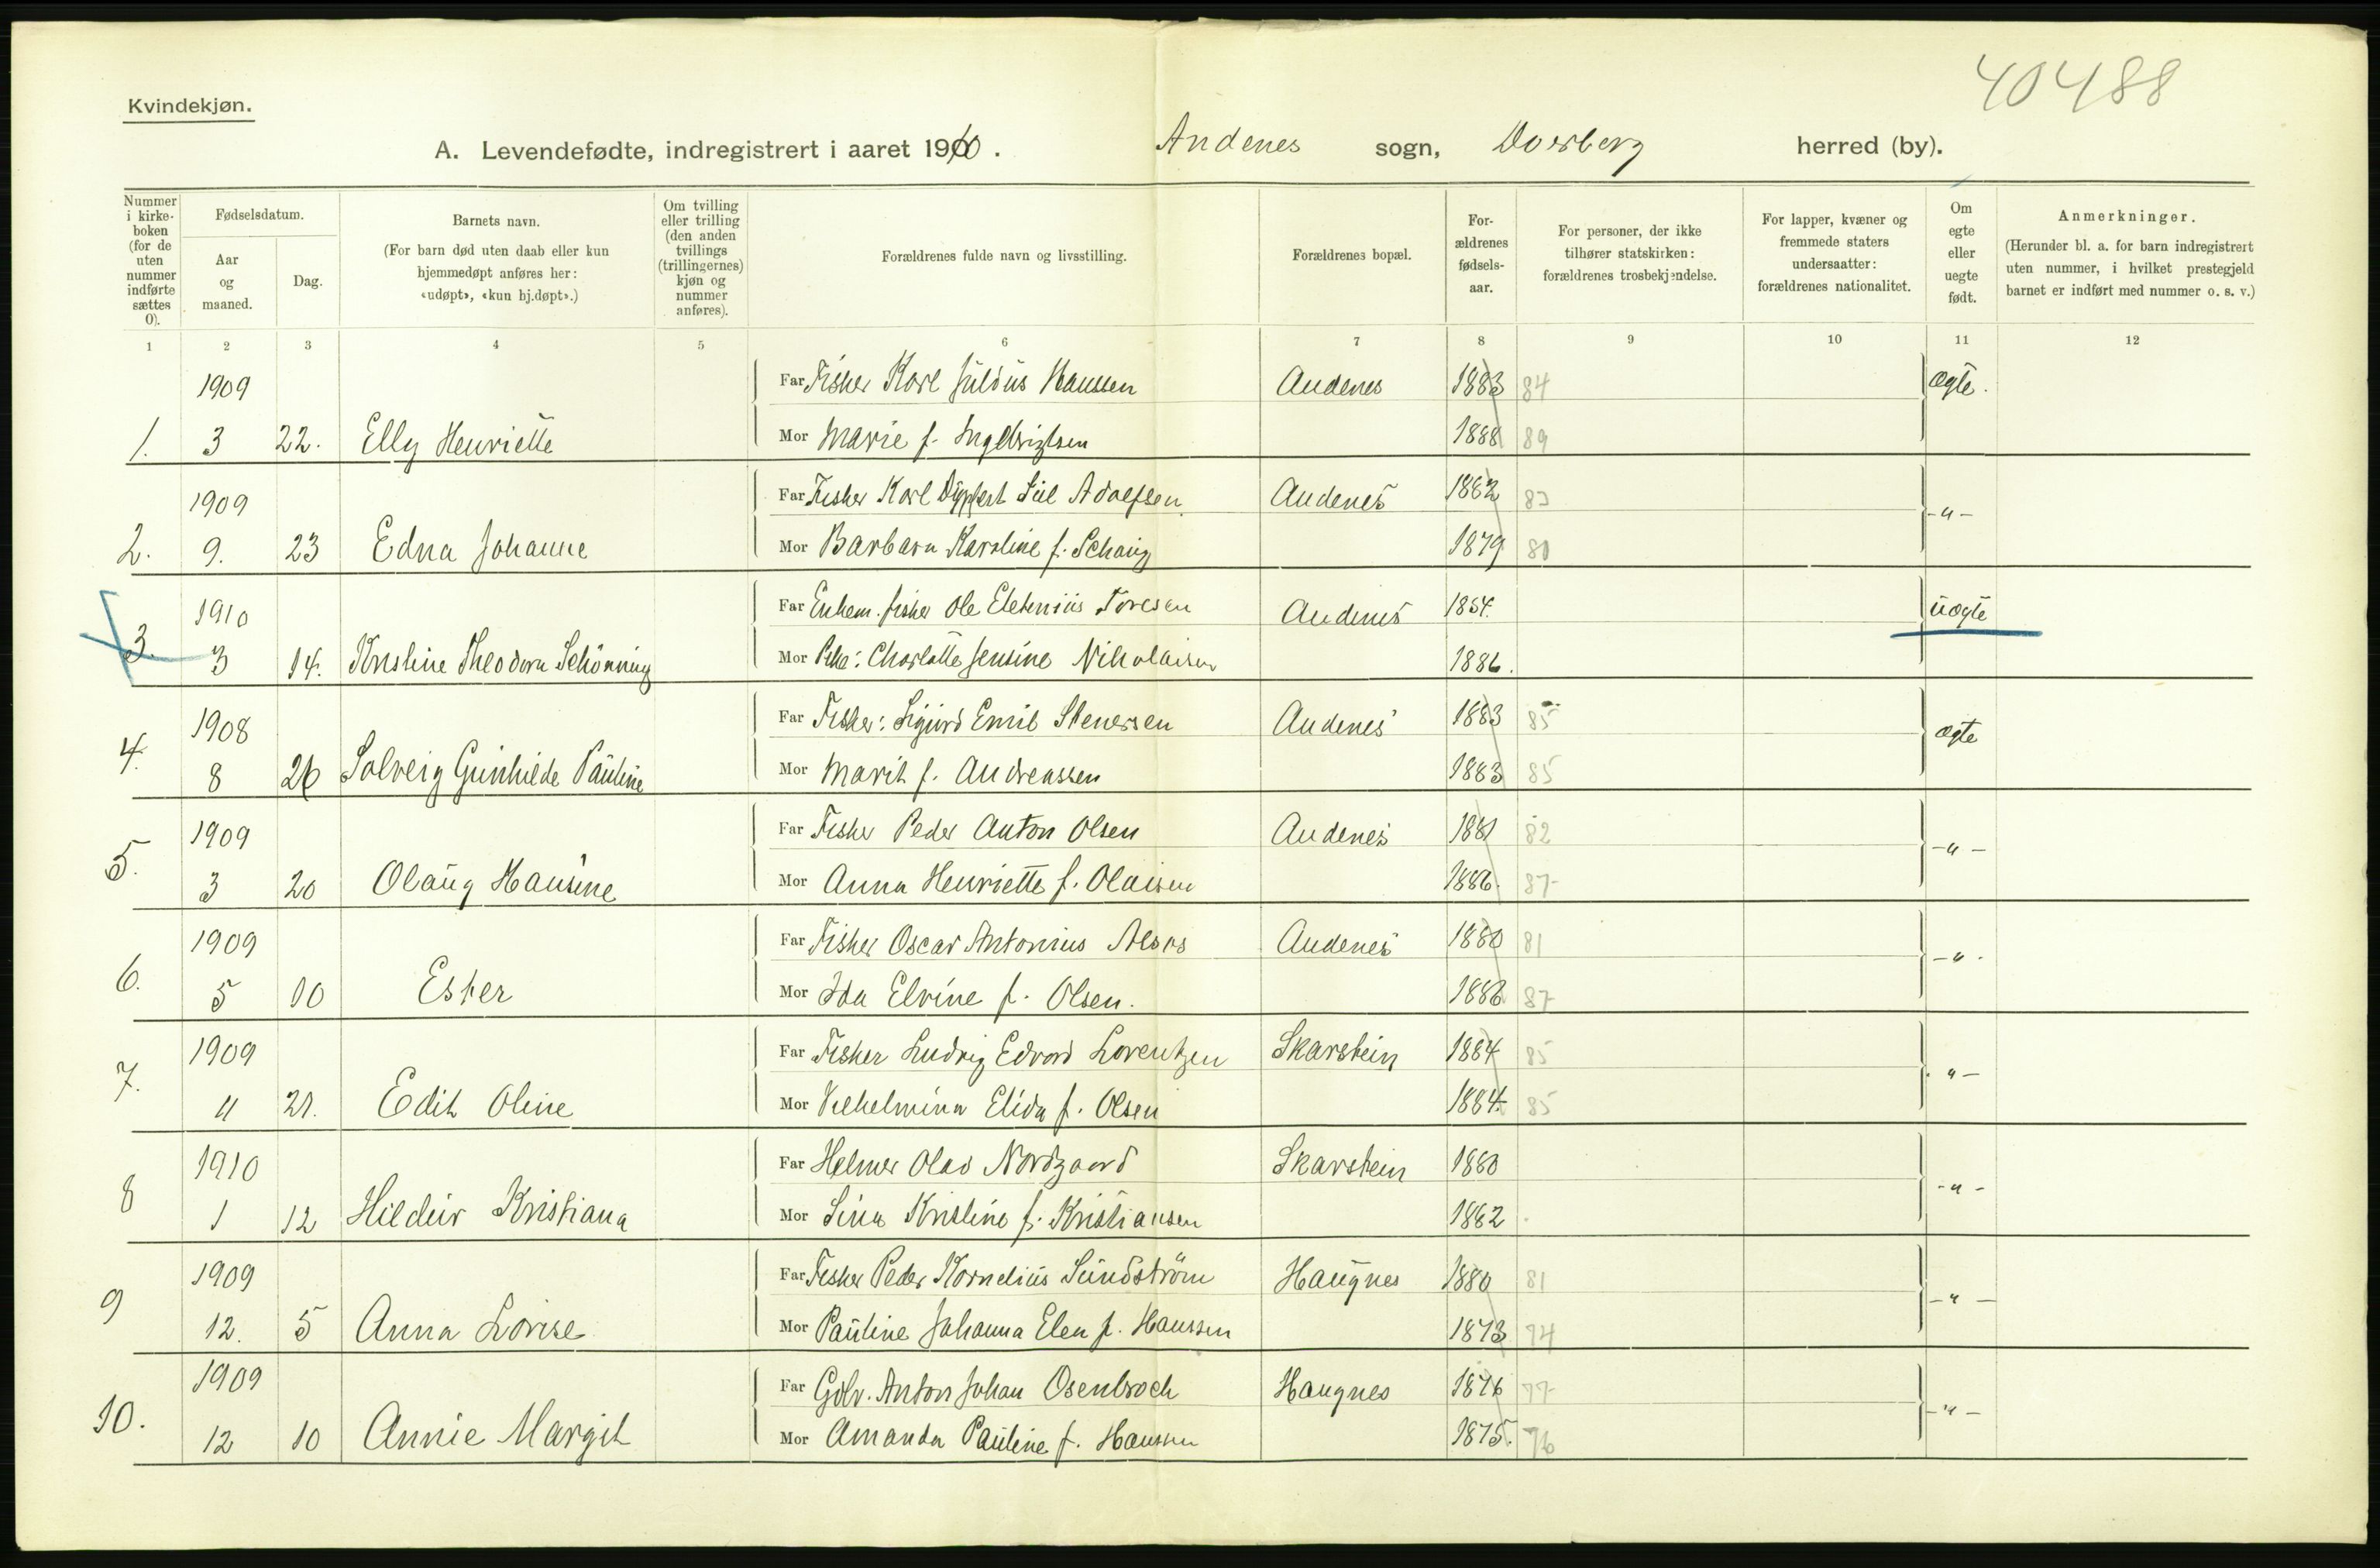 40488
Kvindekjøn.
A. Levendefødte, indregistrert i aaret 1910. Andenes sogn, Dverberg herred (by).
Nummer i kirke-boken (for de uten nummer indførte sættes 0).
Fødselsdatum.
Aar og maaned.
Dag.
Barnets navn.
(For barn død uten daab eller kun hjemmedøpt anføres her: «udøpt», «kun hj.døpt».)
Om tvilling eller trilling (den anden tvillings (trillingernes) kjøn og nummer anføres).
Forældrenes fulde navn og livsstilling.
Forældrenes bopæl.
For-ældrenes fødsels-aar.
For personer, der ikke tilhører statskirken: forældrenes trosbekjendelse.
For lapper, kvæner og fremmede staters undersaatter: forældrenes nationalitet.
Om egte eller uegte født.
Anmerkninger.
(Herunder bl. a. for barn indregistrert uten nummer, i hvilket prestegjeld barnet er indført med nummer o. s. v.)
1 2 3 4 5 6 7 8 9 10 11 12
1909 Far Fisker Karl Julius Hanssen Andenes 1883 84 ægte.
1. 3 22. Elly Henriette Mor Marie f. Ingebrigtsen 1888 89
1909 Far Fisker Karl Sil Adolfsen Andenes 1882 83 -"-
2. 9. 23 Edna Johanne Mor Barbara Karoline f. Schaug 1879 80
1910 Far Enkem. fisker Ole Toresen Andenes 1854. uægte
3. 3 14. Kristine Theodora Schönning Mor Pike: Charlotte Jensine Nikolaisen 1886.
1908 Far Fisker: Sigurd Emil Stenersen Andenes 1883 85 ægte
4. 8 26 Solveig Gunhilde Pauline Mor Marit f. Andreassen 1883 85
1909 Far Fisker Peder Anton Olsen Andenes 1881 82 -"-
5. 3 20 Olaug Hansine Mor Anna Henriette f. Olaisen 1886. 87
1909 Far Fisker Oscar Antonius Andenes 1880 81 -"-
6. 5 10 Ester Mor Ida Elvine f. Olsen. 1886 87
1909 Far Fisker Ludvig Edvard Lorentzen Skarstein 1884 85 "-
7. 11 21. Edit Oline Mor Vilhelmina Elida f. Olsen 1884. 85
1910 Far Helmer Olav Nordgaard Skarstein 1880 -"-
8 1 12 Hildur Kristiana Mor Lina Kristine f. Kristiansen 1882
1909 Far Fisker Peder Kornelius Sundström Haugnes 1880 81 -"-
9 12. 5 Anna Lovise Mor Pauline Johanna Elen f. Hanssen 1873 74
1909 Far Gdbr. Anton Johan Osenbroch Haugnes 1876 77 -"-
10. 12 10 Annie Margit Mor Amanda Pauline f. Hanssen 1875. 76